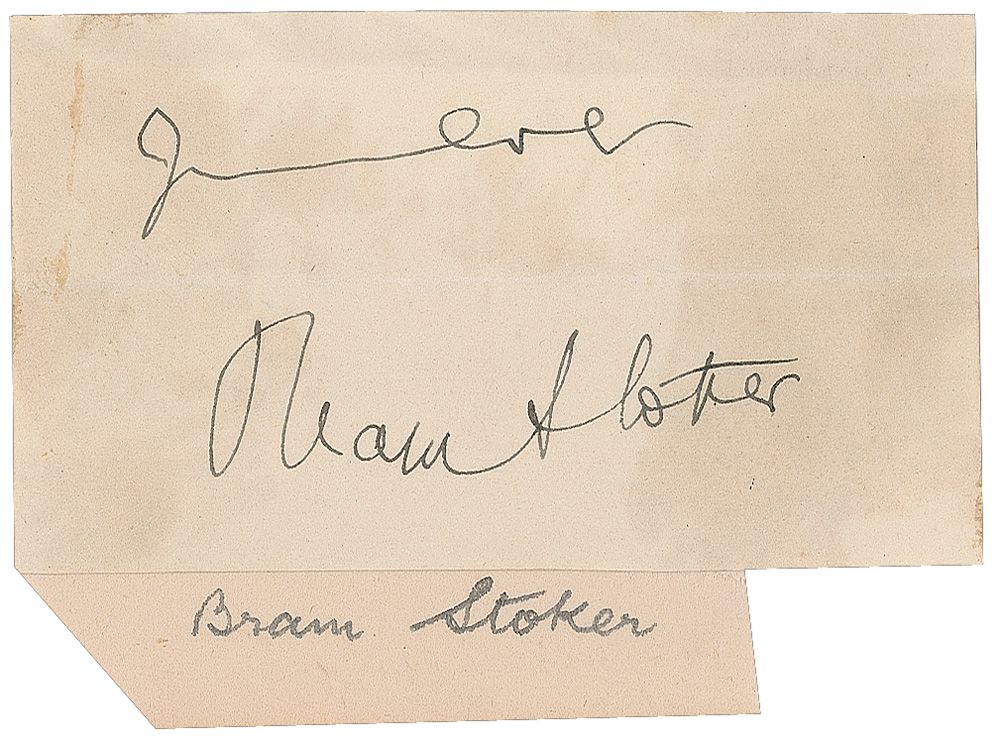 Yours ever
Bram Stoker
Bram Stoker